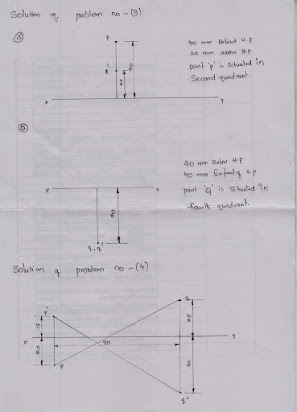 Solution of problem no-(3)
a
P
P'
40
20
X
Y
40 mm behind V.P
20 mm above H.P.
point 'P' is Situated in
Second quadrant.
b
X
Y
40
q, q'
40 mm below H.P
40 mm Infront of V.P
point 'Q' is Situated in
fourth quadrant.
Solution of problem no-(4)
P'
q
15
25
X
90
Y
20
40
P
q'